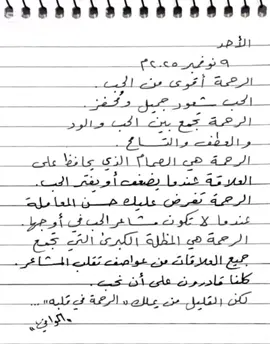 الأحد
٩ نوفمبر ٢٠٢٥م
الرحمة أقوى من الحب.
الحب شعور جميل ومُحفز.
الرحمة تجمع بين الحب والود
والعطف والتسامح.
الرحمة هي الصمام الذي يحافظ على
العلاقة عندما يضعف أو يفتر الحب.
الرحمة تفرض عليك حسن المعاملة
عندما لا تكون مشاعر الحب في أوجها.
الرحمة هي المظلة الكبرى التي تجمع
جميع العلاقات من عواصف تقلب المشاعر.
كلنا قادرون على أن نحب.
لكن القليل من يملك "الرحمة في قلبه"...